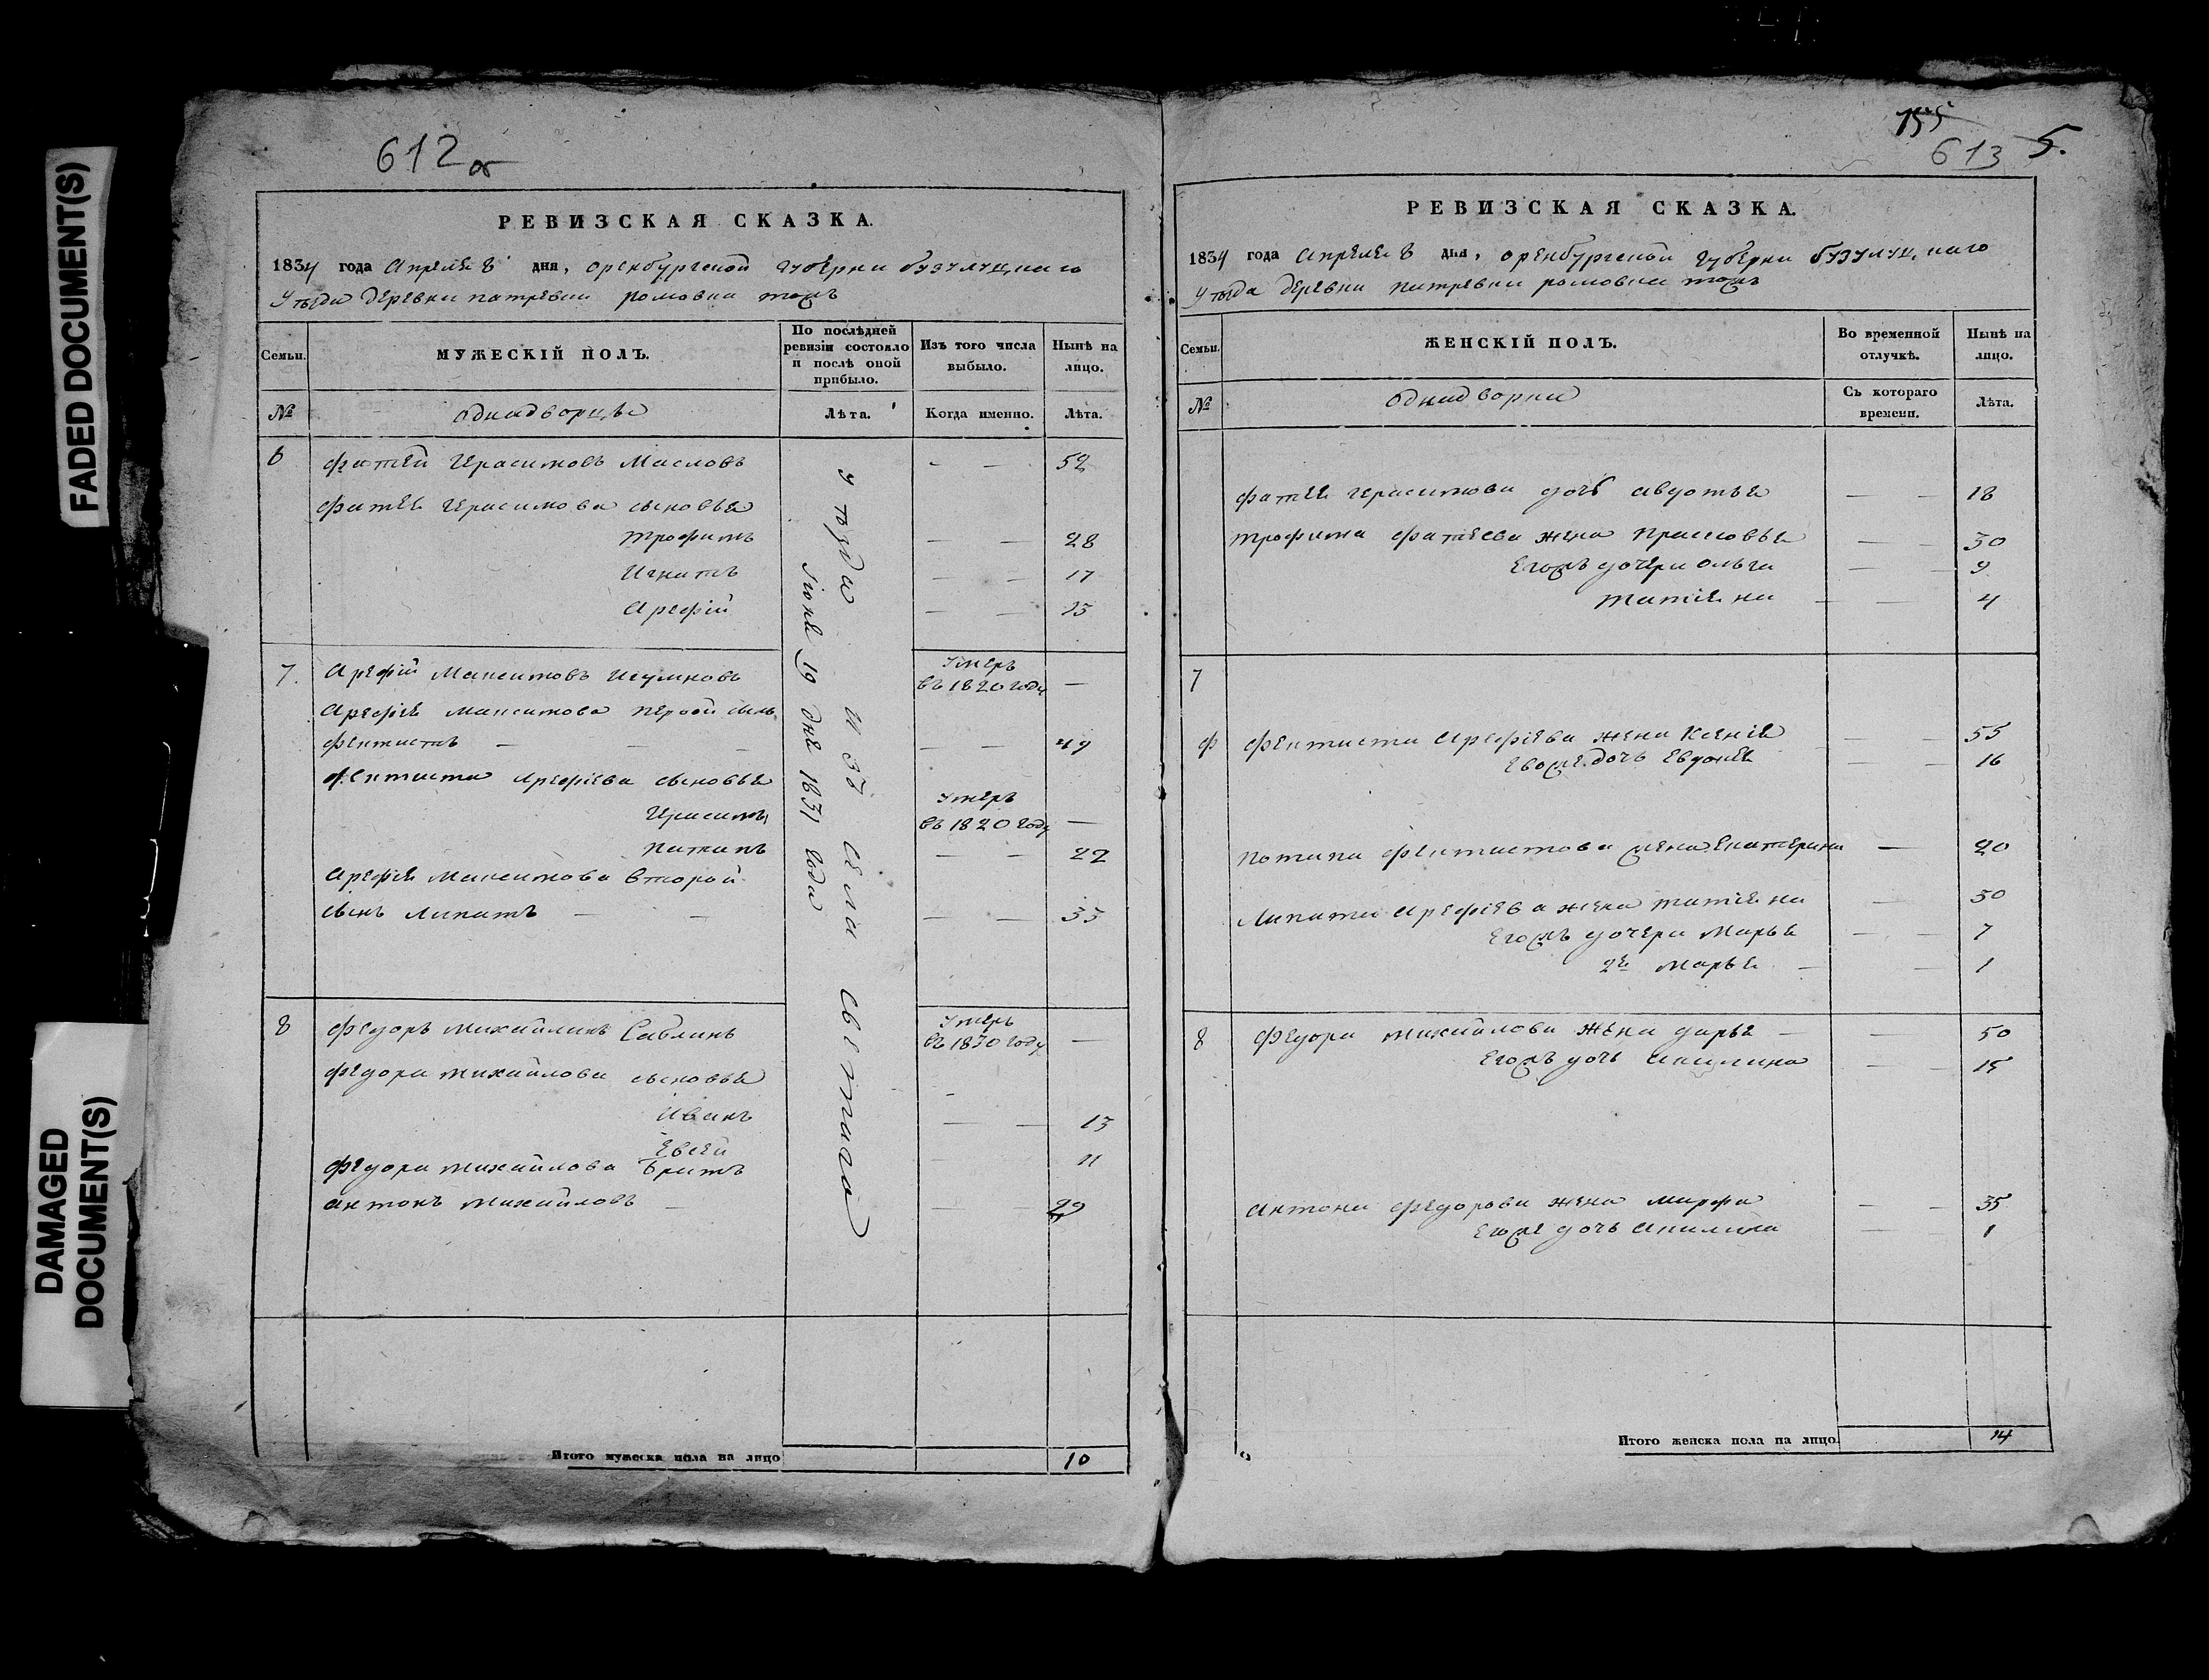 FADED DOCUMENT(S)
DAMAGED
DOCUMENT(S)
612 об
РЕВИЗСКАЯ СКАЗКА.
1834 года Апреля 8 дня, оренбургской губерни бузулуцкаго
уезда деревни патревки ромовка тожъ
Семьи.
МУЖЕСКІЙ ПОЛЪ.
По послѣдней
ревизіи состояло
и послѣ оной
прибыло.
Изъ того числа
выбыло.
Нынѣ на
лицо.
№
однадворцы
Лѣта.
Когда именно.
Лѣта.
6 Фатей Герасимовъ Масловъ — — 52
Фатея Герасимова сыновья
трофимъ — — 28
Игнатъ — — 17
Арефій — — 15
7. Арефій Максимовъ Умеръ
въ 1820 году —
Арефія Максимова первой сынъ
фектистъ — — — — — 49
фектиста Арефіева сыновья
Герасимъ Умеръ
въ 1820 году —
патапъ — — 22
Арефія Максимова второй
сынъ Липатъ — — — — 35
8 федоръ михайлинъ Саблинъ Умеръ
въ 1830 году —
федора михайлова сыновья
Иванъ — — 13
Евсей — 11
федора михайлова братъ
антонъ михайловъ — — — 29
уезда изъ села
Іюня 19 дня 1831 года
Итого мужеска пола на лицо 10
155
613 5.
РЕВИЗСКАЯ СКАЗКА.
1834 года апреля 8 дня, оренбургской губерни бузулуц.каго
уезда деревни патревки ромовка тожъ
Семьи.
ЖЕНСКІЙ ПОЛЪ.
Во временной
отлучкѣ.
Нынѣ на
лицо.
№
однадворки
Съ котораго
времени.
Лѣта.
фатея герасимова дочь авдотья — — 18
трофима фатеева жена прасковья — — 30
Егожъ дочери ольга — — 9
татіяна — — 4
7
ф фектиста арефіева жена Ксенія — — 55
Евоже дочь Евдокея — — 16
потапа фектистова жена екатерина — 20
Липата арефіева жена татіяна — 30
Егожъ дочери Марья — — 7
2я марья — — 1
8 федора михайлова жена дарья — — 50
Егожъ дочь акилина — — 15
антона федорова жена марфа — — 35
Егоже дочь акилина — 1
Итого женска пола на лицо. 14